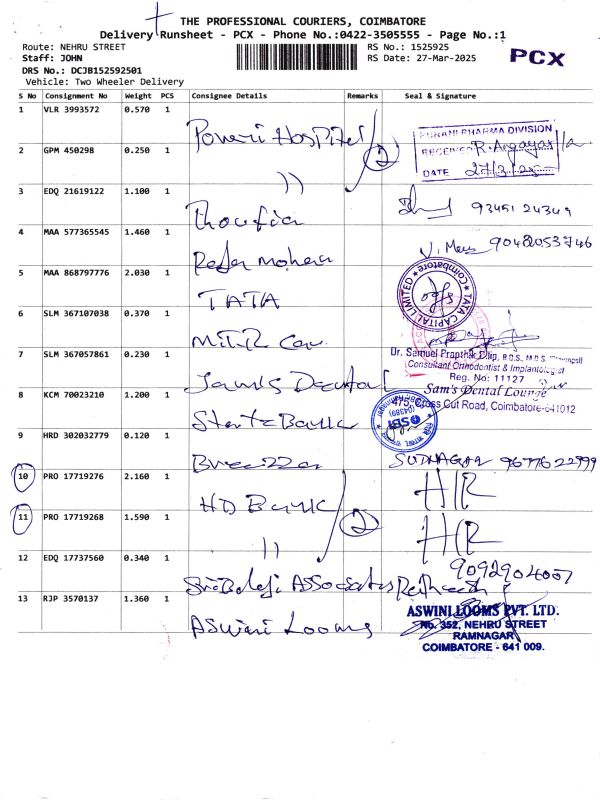 THE PROFESSIONAL COURIERS, COIMBATORE
Delivery Runsheet - PCX - Phone No.:0422-3505555 - Page No.:1
Route: NEHRU STREET
RS No.: 1525925
Staff: JOHN
RS Date: 27-Mar-2025
PCX
DRS No.: DCJB152592501
Vehicle: Two Wheeler Delivery
S No Consignment No Weight PCS Consignee Details Remarks Seal & Signature
1 VLR 3993572 0.570 1 Poweri Hospital
PURANI PHARMA DIVISION
RECEIVED
DATE 27/3/25
2 GPM 450298 0.250 1 )) 2
3 EDQ 21619122 1.100 1 Thoufia 93451 24349
4 MAA 577365545 1.460 1 Mohan 9042053746
5 MAA 868797776 2.030 1 TATA
TATA CAPITAL LIMITED * Coimbatore *
6 SLM 367107038 0.370 1
Dr. Samuel Prapthik Dilip, B.D.S., M.D.S.
Consultant Orthodontist & Implantologist
Reg. No: 11127
Sam's Dental Lounge
475, Cross Cut Road, Coimbatore-641012
7 SLM 367057861 0.230 1 Dental
8 KCM 70023210 1.200 1 State Bank
SBI
9 HRD 302032779 0.120 1 Breezza SUDHAGAR 9677622999
10 PRO 17719276 2.160 1 HD Bank HR
11 PRO 17719268 1.590 1 )) 2 HR
12 EDQ 17737560 0.340 1 Sri Balaji Associates 9092904007
13 RJP 3570137 1.360 1 Aswini Looms
ASWINI LOOMS PVT. LTD.
No. 352, NEHRU STREET
RAMNAGAR
COIMBATORE - 641 009.